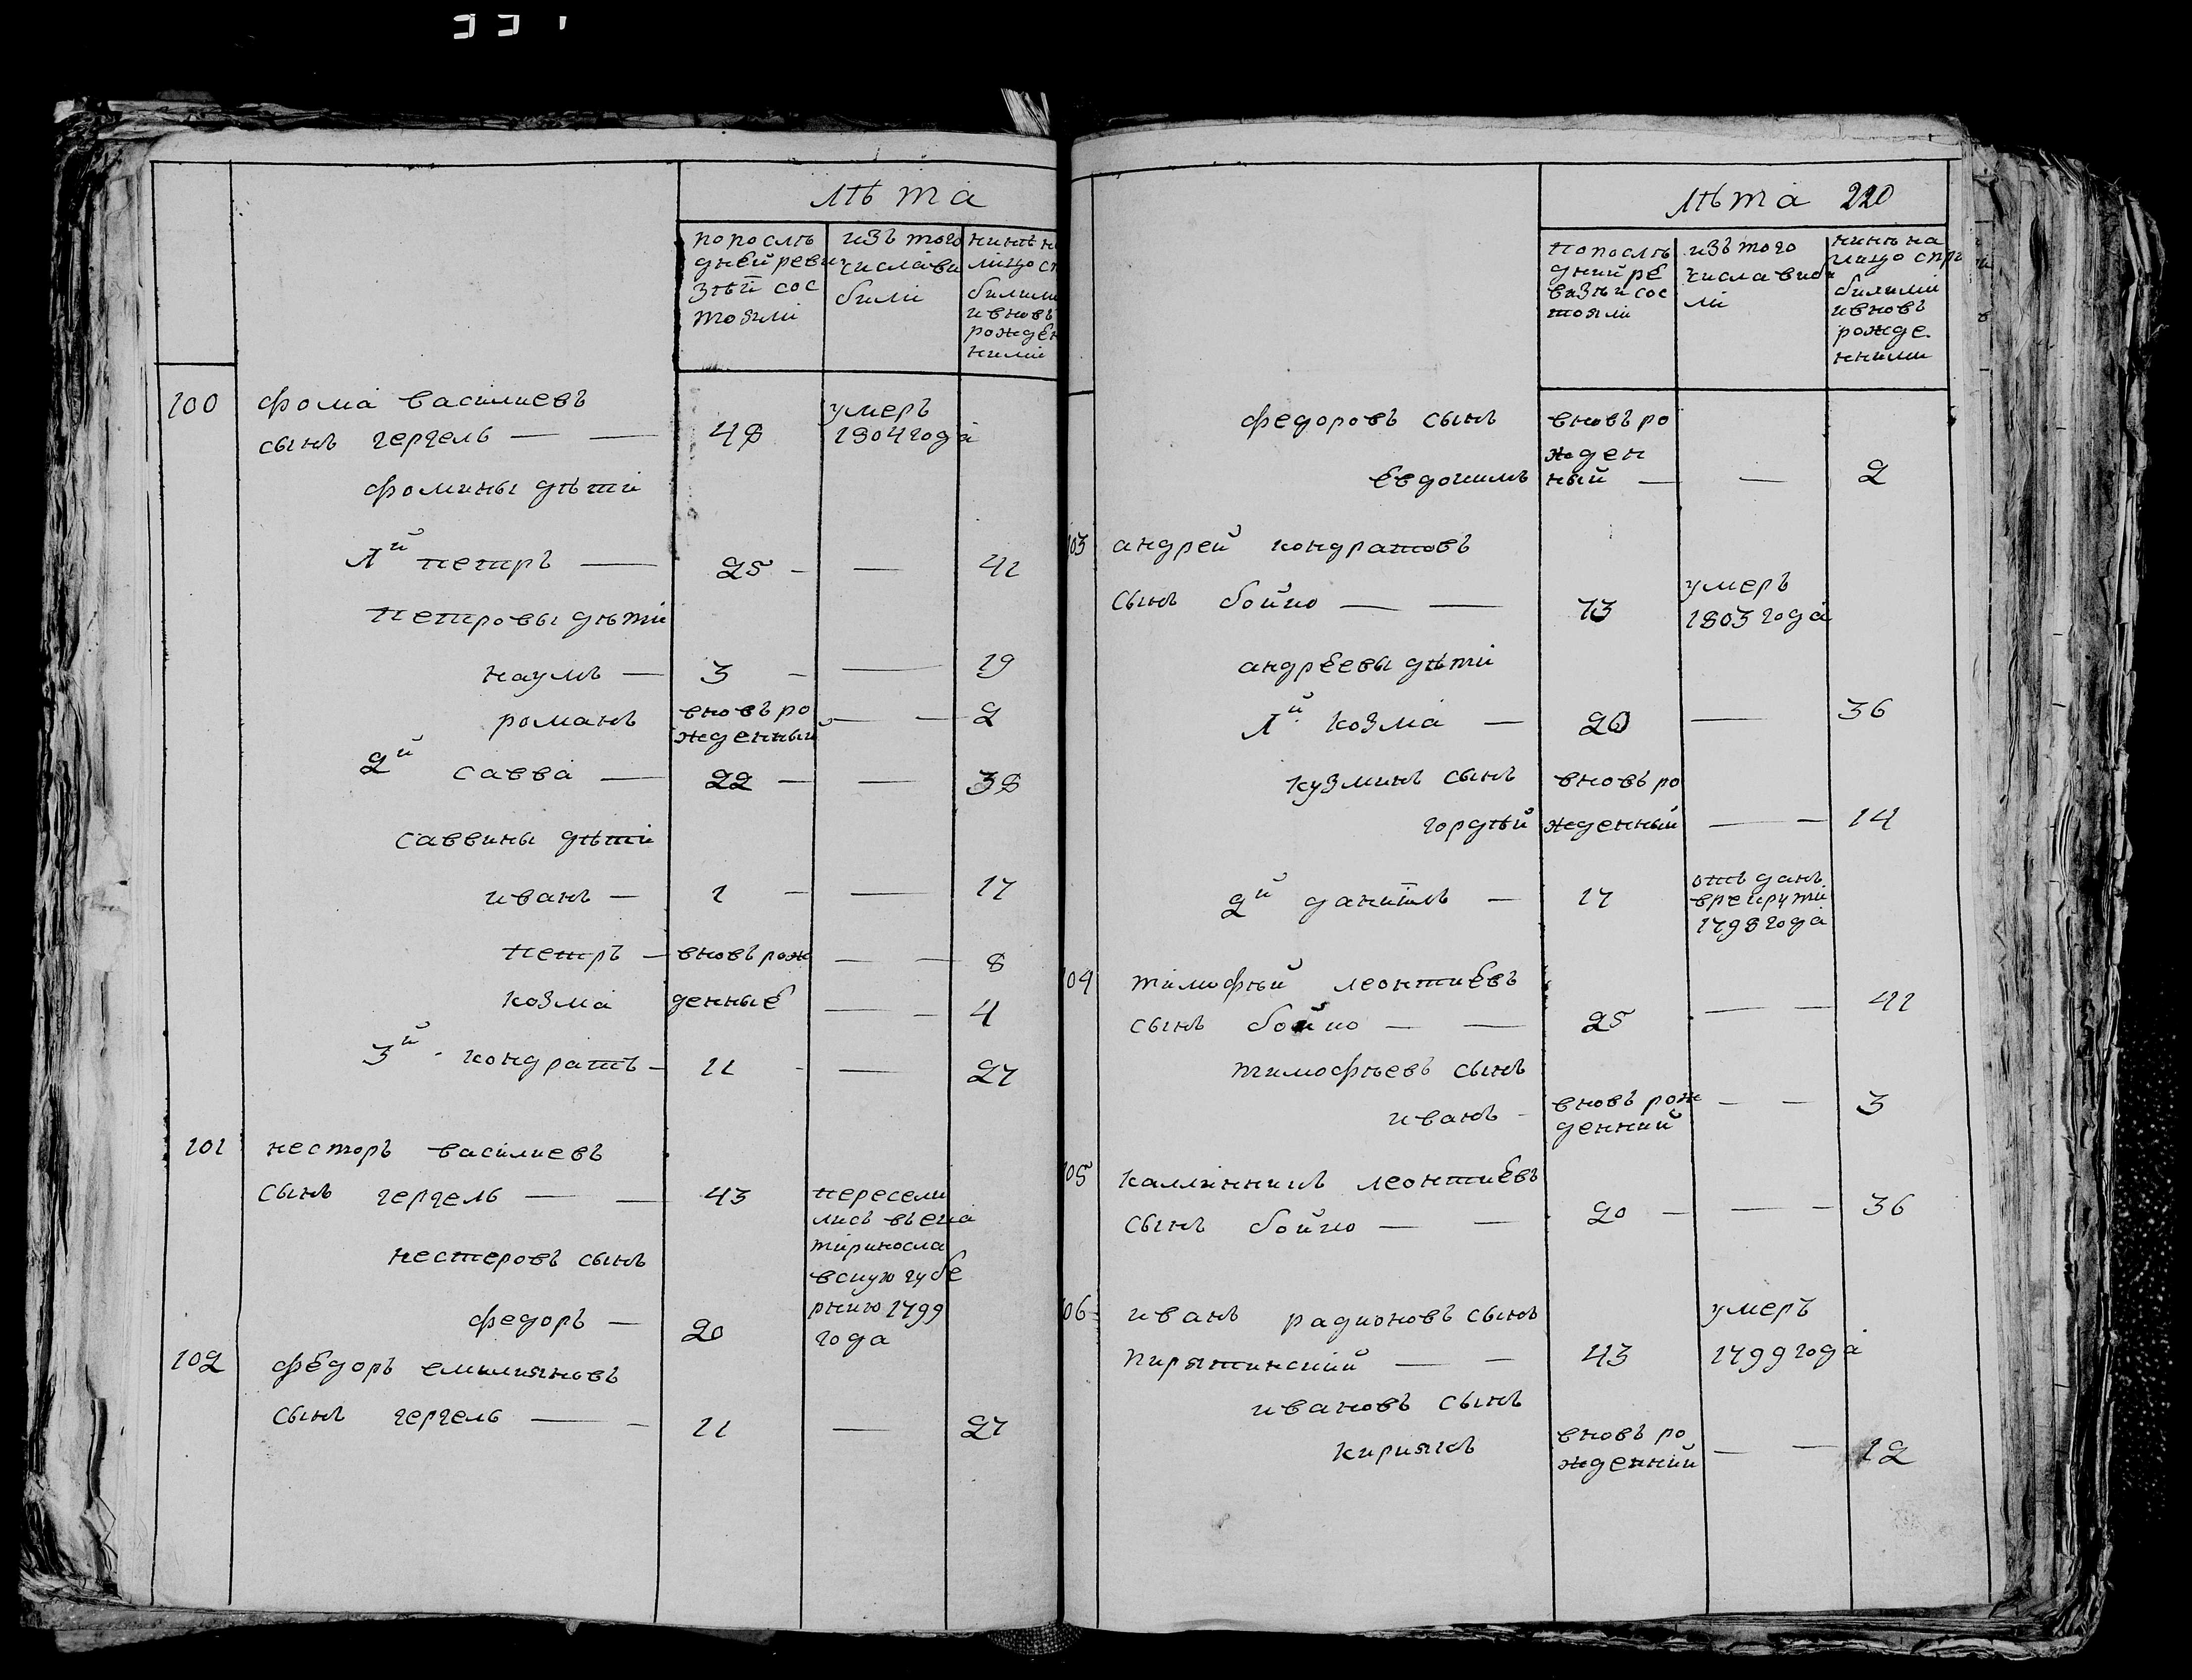 лѣта
по послѣ
дней реви
зѣй сос
тояли
изъ того
числа ви
били
нинѣ н
лицо сп
билими
и вновь
рожден
ними
100
фома василиевъ
сынъ гергель — —
48
умеръ
1804 года
фомины дѣти
1й петръ —
25 —
—
41
петровы дѣти
наумъ —
3 —
—
19
романъ
вновь ро
жденный
— —
2
2й савва —
22 —
—
38
саввины дѣти
иванъ —
1 —
—
17
петръ —
вновь рож
— —
8
козма
денные
— —
4
3й кондратъ —
11 —
—
27
101
несторъ василиевъ
сынъ гергель — —
43
пересели
лись въ ека
тириносла
вскую губе
рнию 1799
года
нестеровъ сынъ
федоръ —
20
102
федоръ емилияновъ
сынъ гергель — —
11
—
27
лѣта 220
по послѣ
дний ре
визѣи сос
тояли
изъ того
числа виби
ли
нинѣ на
лицо спри
билими
и вновь
рожде
нними
федоровъ сынъ
вновь ро
жден
евдокимъ
ный —
—
2
103
андрей кондратовъ
сынъ бойко — —
73
умеръ
1803 года
андреевы дѣти
1й козма —
20
—
36
кузминъ сынъ
вновь ро
гордѣй
жденный
— —
14
2й данiилъ —
17
отъ данъ
врекрути
1798 года
104
тимофѣй леонтиевъ
сынъ бойко — —
25
— —
41
тимофѣевъ сынъ
иванъ —
вновь рож
денний
— —
3
105
каллинникъ леонтиевъ
сынъ бойко — —
20 —
— —
36
106
иванъ радионовъ сынъ
пирятинский — —
43
умеръ
1799 года
ивановъ сынъ
кириякъ
вновь ро
жденний
— —
12